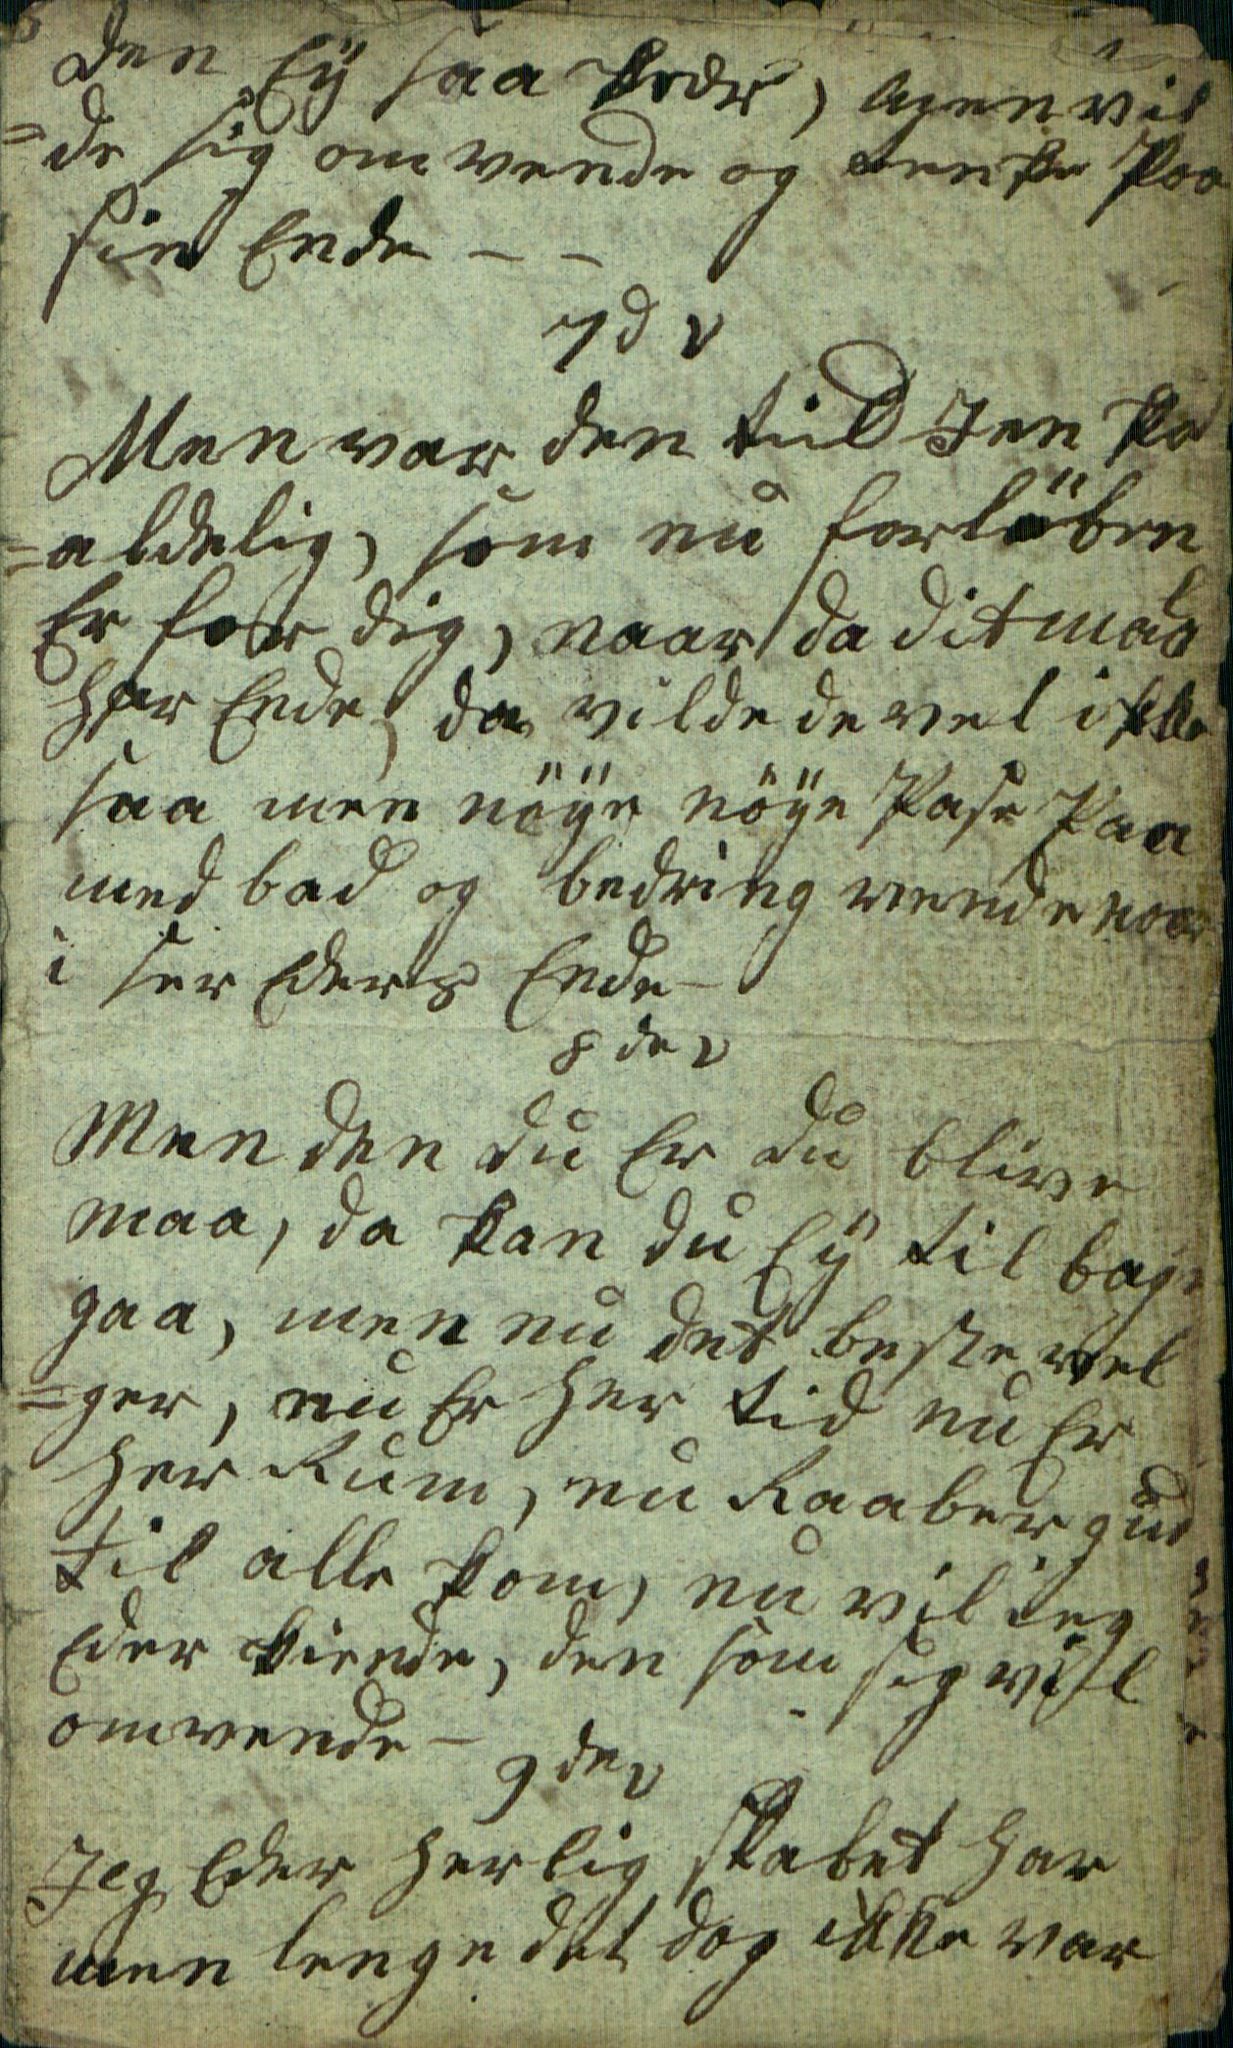 den Eÿ saa kede, men vil
=de sig omvende og tenke Paa
sin Ende - -
7d v
Men var den tiid Jen ka
=aldelig, som nu forlöben
Er for dig, naar da dit maal
har Ende, da vilde de vel ikke
saa men nöÿe nöÿe Pase Paa
med bad og bedring vende naar
i ser Eders Ende -
8 de v
Men den du Er du blive
maa, da kan du Eÿ til bage
gaa, men nu det beste vel
=ger, nu Er her tid nu Er
her Rum, nu Raaber gud
til alle kom, nu vil ieg
Eder kiende, den som sig vil
omvende -
9 de v
Jeg Eder herlig skabet har
men lenge det dog ikke var